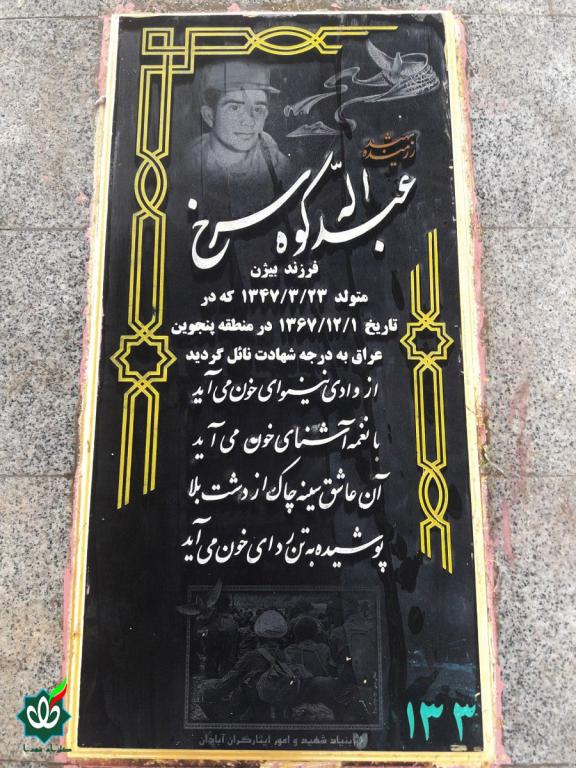 رزمنده شهید
عبداله کوه سرخ
فرزند بیژن
متولد ۱۳۴۷/۳/۲۳ که در
تاریخ ۱۳۶۷/۱۲/۱ در منطقه پنجوین
عراق به درجه شهادت نائل گردید
از وادی نینوای خون می آید
با نغمه آشنای خون می آید
آن عاشق سینه چاک از دشت بلا
پوشیده به تن ردای خون می آید
بنیاد شهید و امور ایثارگران آبادان
۱۳۳
گلزار شهدا